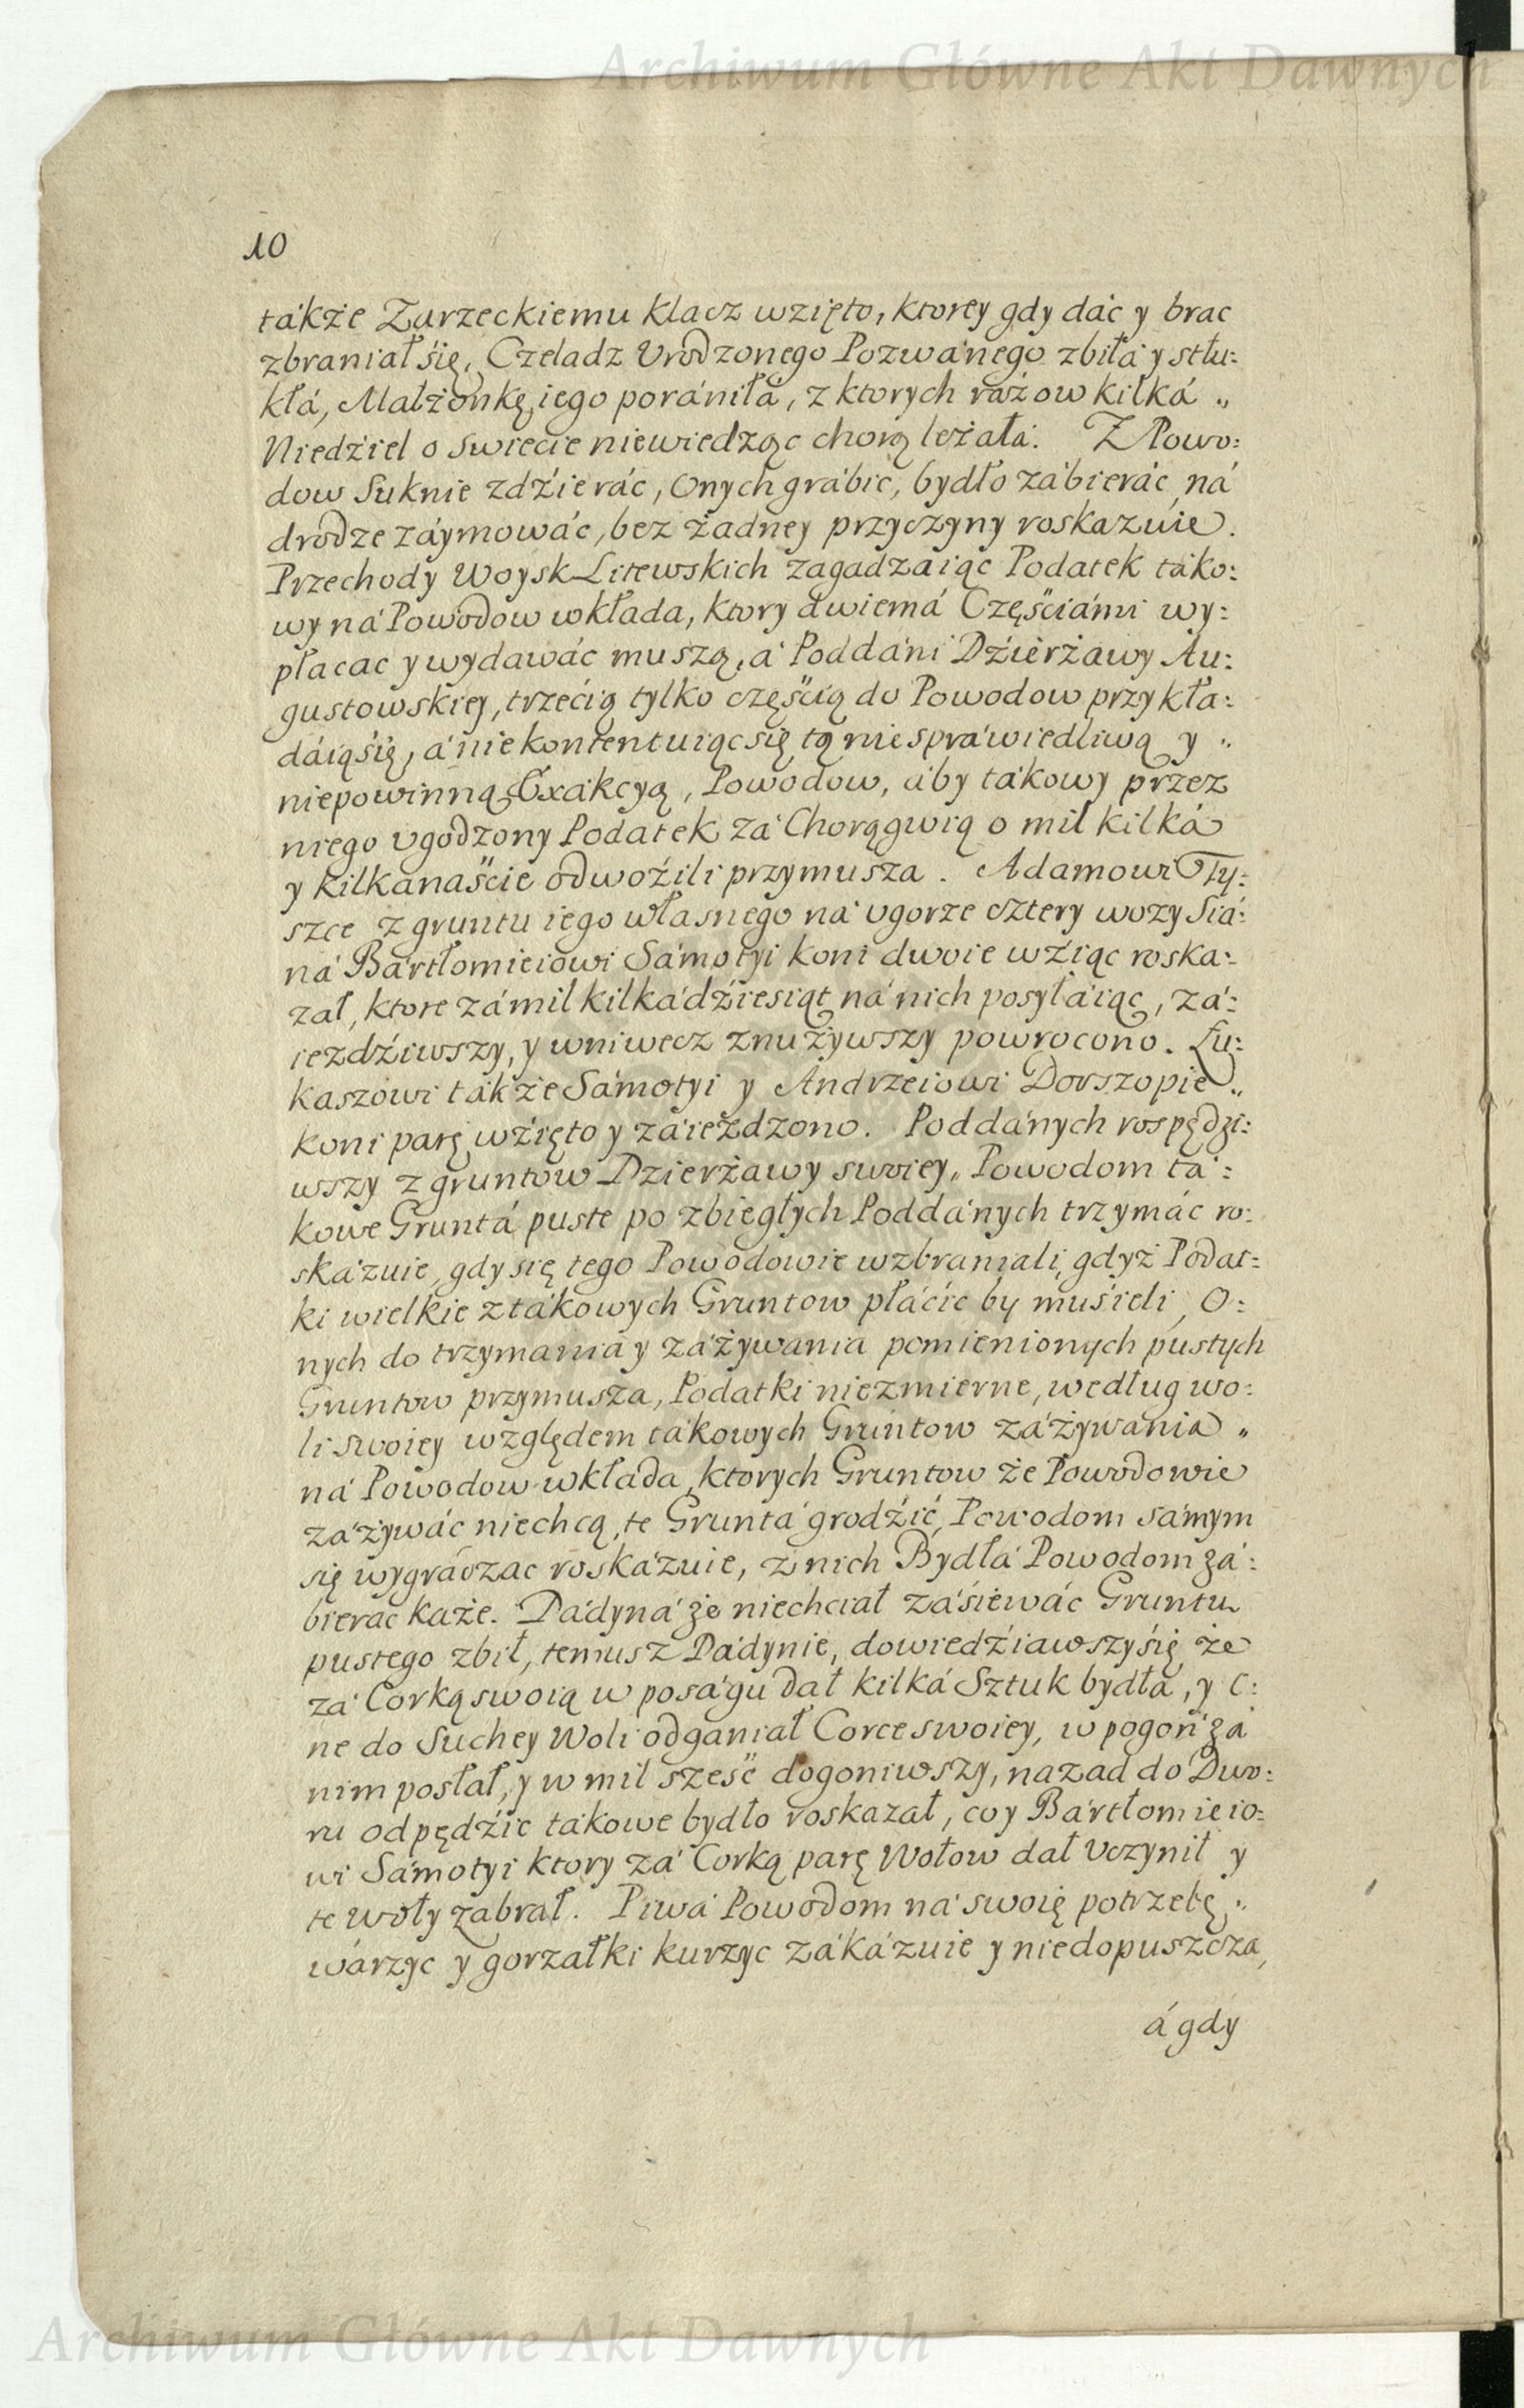 Archiwum Główne Akt Dawnych
10
tákże Zurzeckiemu klacz wzięto, ktorey gdy dáć y brac
zbraniał się, Czeladz Vrodzonego Pozwánego zbiłá y stłu:
kłá, Małżonkę iego porániłá, z ktorych rázow kilká „
Niedźiel o swiecie niewiedząc chorą leżała. Z Powo:
dow Suknie zdźieráć, Onych grábić, bydło zábieráć ná
drodze záymowáć, bez żadney przyczyny roskazuie.
Przechody Woysk Litewskich zagadzaiąc Podatek táko:
wy ná Powodow wkłada, ktory dwiemá Częśćiámi wy:
płacac y wydawáć muszą, á Poddáni Dźierżáwy Au:
gustowskiey, trzećią tylko częśćią do Powodow przykłá:
dáią śię, á nie kontentuiąc się tą niespráwiedliwą y „
niepowinną Exákcyą, Powodow, áby tákowy przez
niego vgodzony Podatek zá Chorągwią o mil kilká
y kilkanaśćie odwoźili przymusza. Adamowi Ty:
szce z gruntu iego własnego ná vgorze cztery wozy Siá:
ná Bártłomieiowi Sámotyi koni dwoie wźiąc roska:
zał, ktore zá mil kilkádźiesiąt ná nich posyłáiąc, zá:
iezdźiwszy, y wniwecz znużywszy powrocono. Łu:
kaszowi tákże Sámotyi y Andrzeiowi Dorszopie „
koni parę wźięto y záieżdzono. Poddánych rospędzi:
wszy z gruntow Dzierżáwy swoiey, Powodom tá:
kowe Gruntá puste po zbiegłych Poddánych trzymáć ro:
skázuie, gdy się tego Powodowie wzbraniali, gdyż Podat:
ki wielkie z tákowych Gruntow płáćić by muśieli, O:
nych do trzymania y záżywania pomienionych pustych
Gruntow przymusza, Podatki niezmierne, według wo:
li swoiey względem tákowych Gruntow záżywania „
ná Powodow wkłada, ktorych Gruntow że Powodowie
záżywáć niechcą, te Gruntá grodźić, Powodom sámym
się wygradzac roskázuie, z nich Bydłá Powodom zá:
bierac każe. Dádyná że niechciał záśiewáć Gruntu
pustego zbił, temusz Dádynie, dowiedźiawszy śię że
zá Corką swoią w poságu dał kilká Sztuk bydłá, y o:
ne do Suchey Woli odganiał Corce swoiey, w pogoń zá
nim posłał, y w mil sześć dogoniwszy, nazad do Dwo:
ru odpędźić takowe bydło roskazał, co y Bártłomieio:
wi Sámotyi ktory zá Corką parę Wołow dał Vczynił y
te woły zabrał. Piwá Powodom ná swoię potrzebę „
wárzyc y gorzałki kurzyc zákázuie y niedopuszcza,
á gdy
Archiwum Główne Akt Dawnych